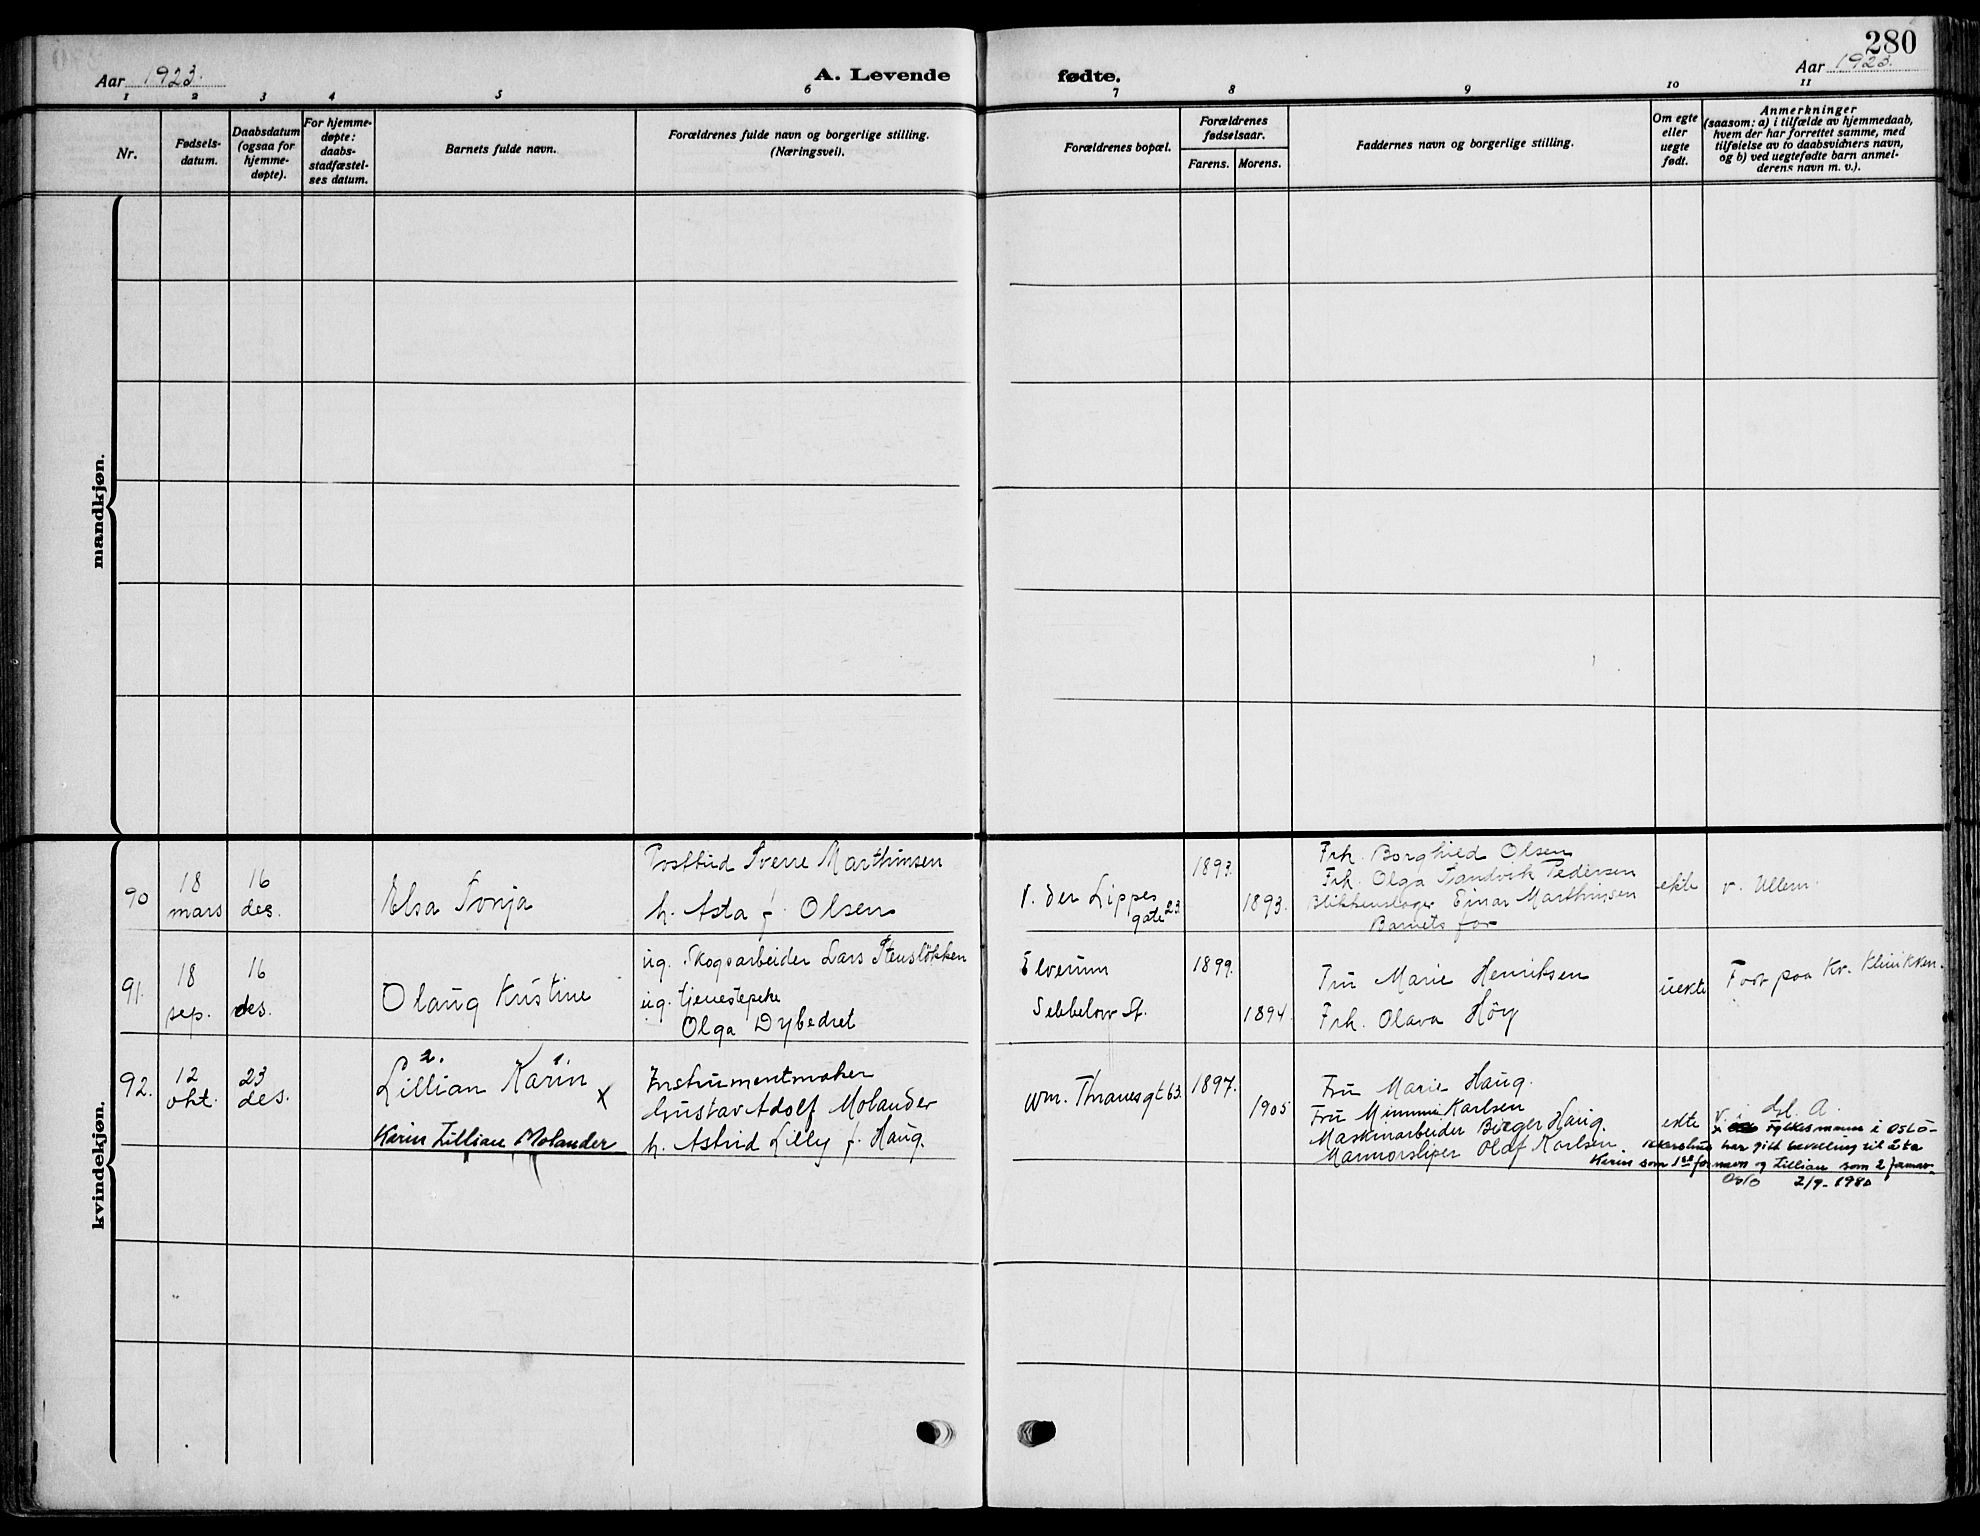 280
Aar 1923.
A. Levende
fødte.
Aar 1923.
1 2 3 4 5 6 7 8 9 10 11
Nr.
Fødsels-
datum.
Daabsdatum
(ogsaa for
hjemme-
døpte).
For hjemme-
døpte:
daabs-
stadfæstel-
ses datum.
Barnets fulde navn.
Forældrenes fulde navn og borgerlige stilling.
(Næringsvei).
Forældrenes bopæl.
Forældrenes
fødselsaar.
Farens. Morens.
Faddernes navn og borgerlige stilling.
Om egte
eller
uegte
født.
Anmerkninger
(saasom: a) i tilfælde av hjemmedaab,
hvem der har forrettet samme, med
tilføielse av to daabsvidners navn,
og b) ved uegtefødte barn anmel-
derens navn m. v.).
mandkjøn.
kvindekjøn.
90
18
mars
16
des.
Elsa Sonja
Postbud Sverre Marthinsen
h. Asta f. Olsen
v. der Lippes
gate 23
1893.
1893.
Frk. Borghild Olsen
Frk. Olga Sandvik Pedersen
Blikkenslager Einar Marthinsen
Barnets far
ekte
v. Ullern.
91.
18
sep.
16
des.
Olaug Kristine
ug. Skogsarbeider Lars Stensløkken
ug. tjenestepike
Olga Dybedret
Elverum
Sebbelows St.
1899.
1894.
Fru Marie Henriksen
Frk. Olava Høy
uekte
Født paa Kv. Klinikken.
92.
12
okt.
23
des.
2. 1.
Lillian Karin x
Karin Lillian Molander
Instrumentmaker
Gustav Adolf Molander
h. Astrid Lilly f. Haug.
Wm. Thranes gt 63.
1897.
1905
Fru Marie Haug.
Fru Mimmi Karlsen
Maskinarbeider Birger Haug.
Marmorsliper Olaf Karlsen
ekte
v. i Gl. A.
x Fylkesmannen i Oslo-
Akershus har gitt bevilling til å ta
Karin som 1ste fornavn og Lillian som 2 fornavn
Oslo 2/9-1980